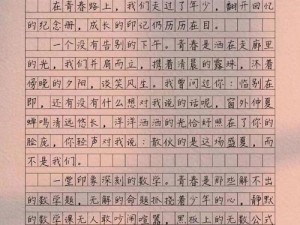 在青春路上，我们走过了年少，翻开回忆
的纪念册，成长的印记仍历历在目。
一个没有告别的下午。青春是洒在走廊里
的光，我们并肩而立，携着清晨的露珠，沐着
傍晚的夕阳，谈笑风生。我曾问过你：临别在
即，还有没有什么想对我说的话呢，窗外仲夏
蝉鸣清远悠长，洋洋洒洒的光恰好照在了你的
脸庞，你轻声对我说：散伙的是这场盛夏，而
不是我们。
一堂印象深刻的数学。青春是那些解不出
的数学题，无解的命题扮搅着少年的心，静默
的数学课无人敢吵闹喧嚣，黑板上的无数公式